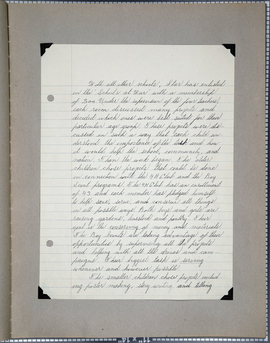 With all other schools, has enlisted
in the Schools at War with a membership
of Under the supervision of the five teachers,
each room discussed many projects and
decided which ones were best suited for their
particular age group. These projects were dis-
cussed in such a way that each child un-
derstood the importance of the and how
it would help the school, community, and
nation. Then the work began. The older
children chose projects that could be done
in connection with the 4-H Club and the Boy
Scout programs. The 4-H Club has an enrollment
of 42 and each member has pledged himself
to help save, serve, and conserve all things
in all possible ways. Both boys and girls are
raising gardens, livestock and poultry. Then
next is the conserving of money and materials.
The Boy Scouts are taking advantage of their
opportunities by informing all projects
and helping with all the drives and cam-
paigns. Their biggest task is serving
whenever and however possible.
The smaller children's projects includ-
ing poster making, story writing and telling